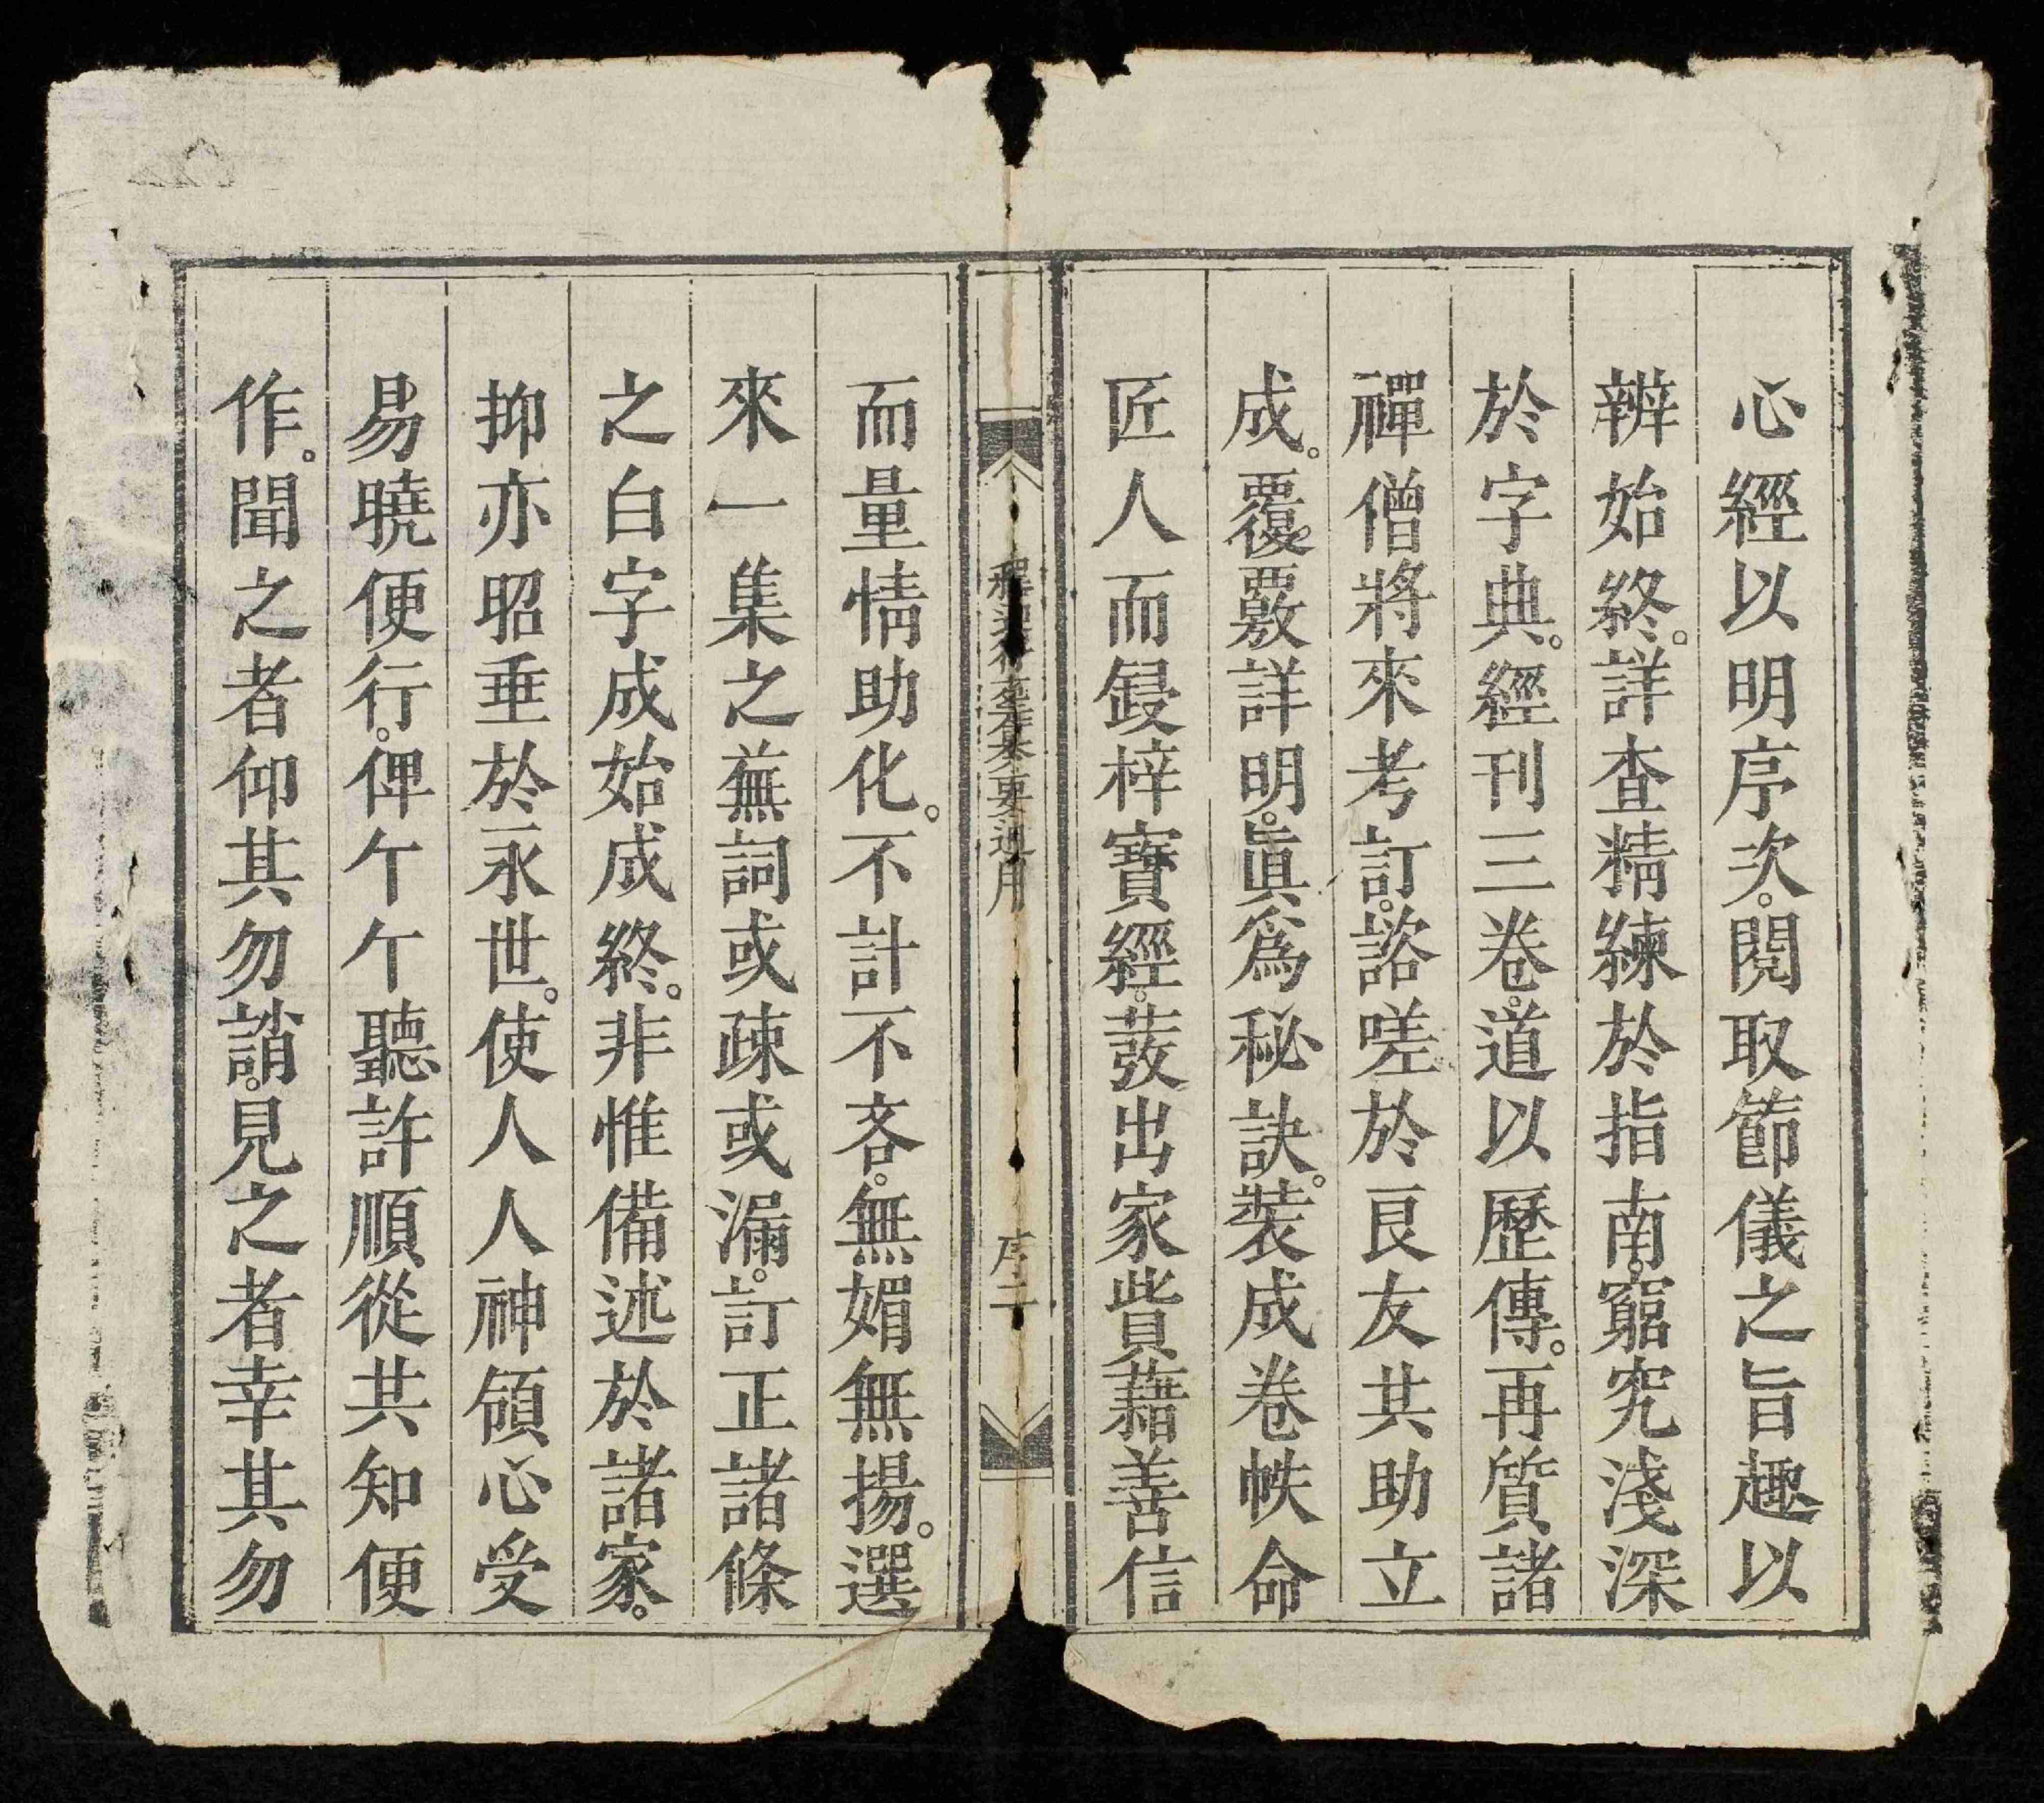 心經以明序次。閱取節儀之旨趣以
辨始終。詳查精練於指南。窮究淺深
於字典。經刊三卷。道以歷傳。再質諸
禪僧將來考訂。諮嗟於良友共助立
成。覆覈詳明。眞爲秘訣。裝成卷帙命
匠人而鋟梓寶經。䤋出家貲藉善信
序二
而量情助化。不計不吝。無媚無揚。選
來一集之蕪詞或疎或漏。訂正諸條
之白字成始成終。非惟備述於諸家。
抑亦昭垂於永世。使人人神領心受
易曉便行。俾个个聽許順從共知便
作。聞之者仰其勿誚。見之者幸其勿